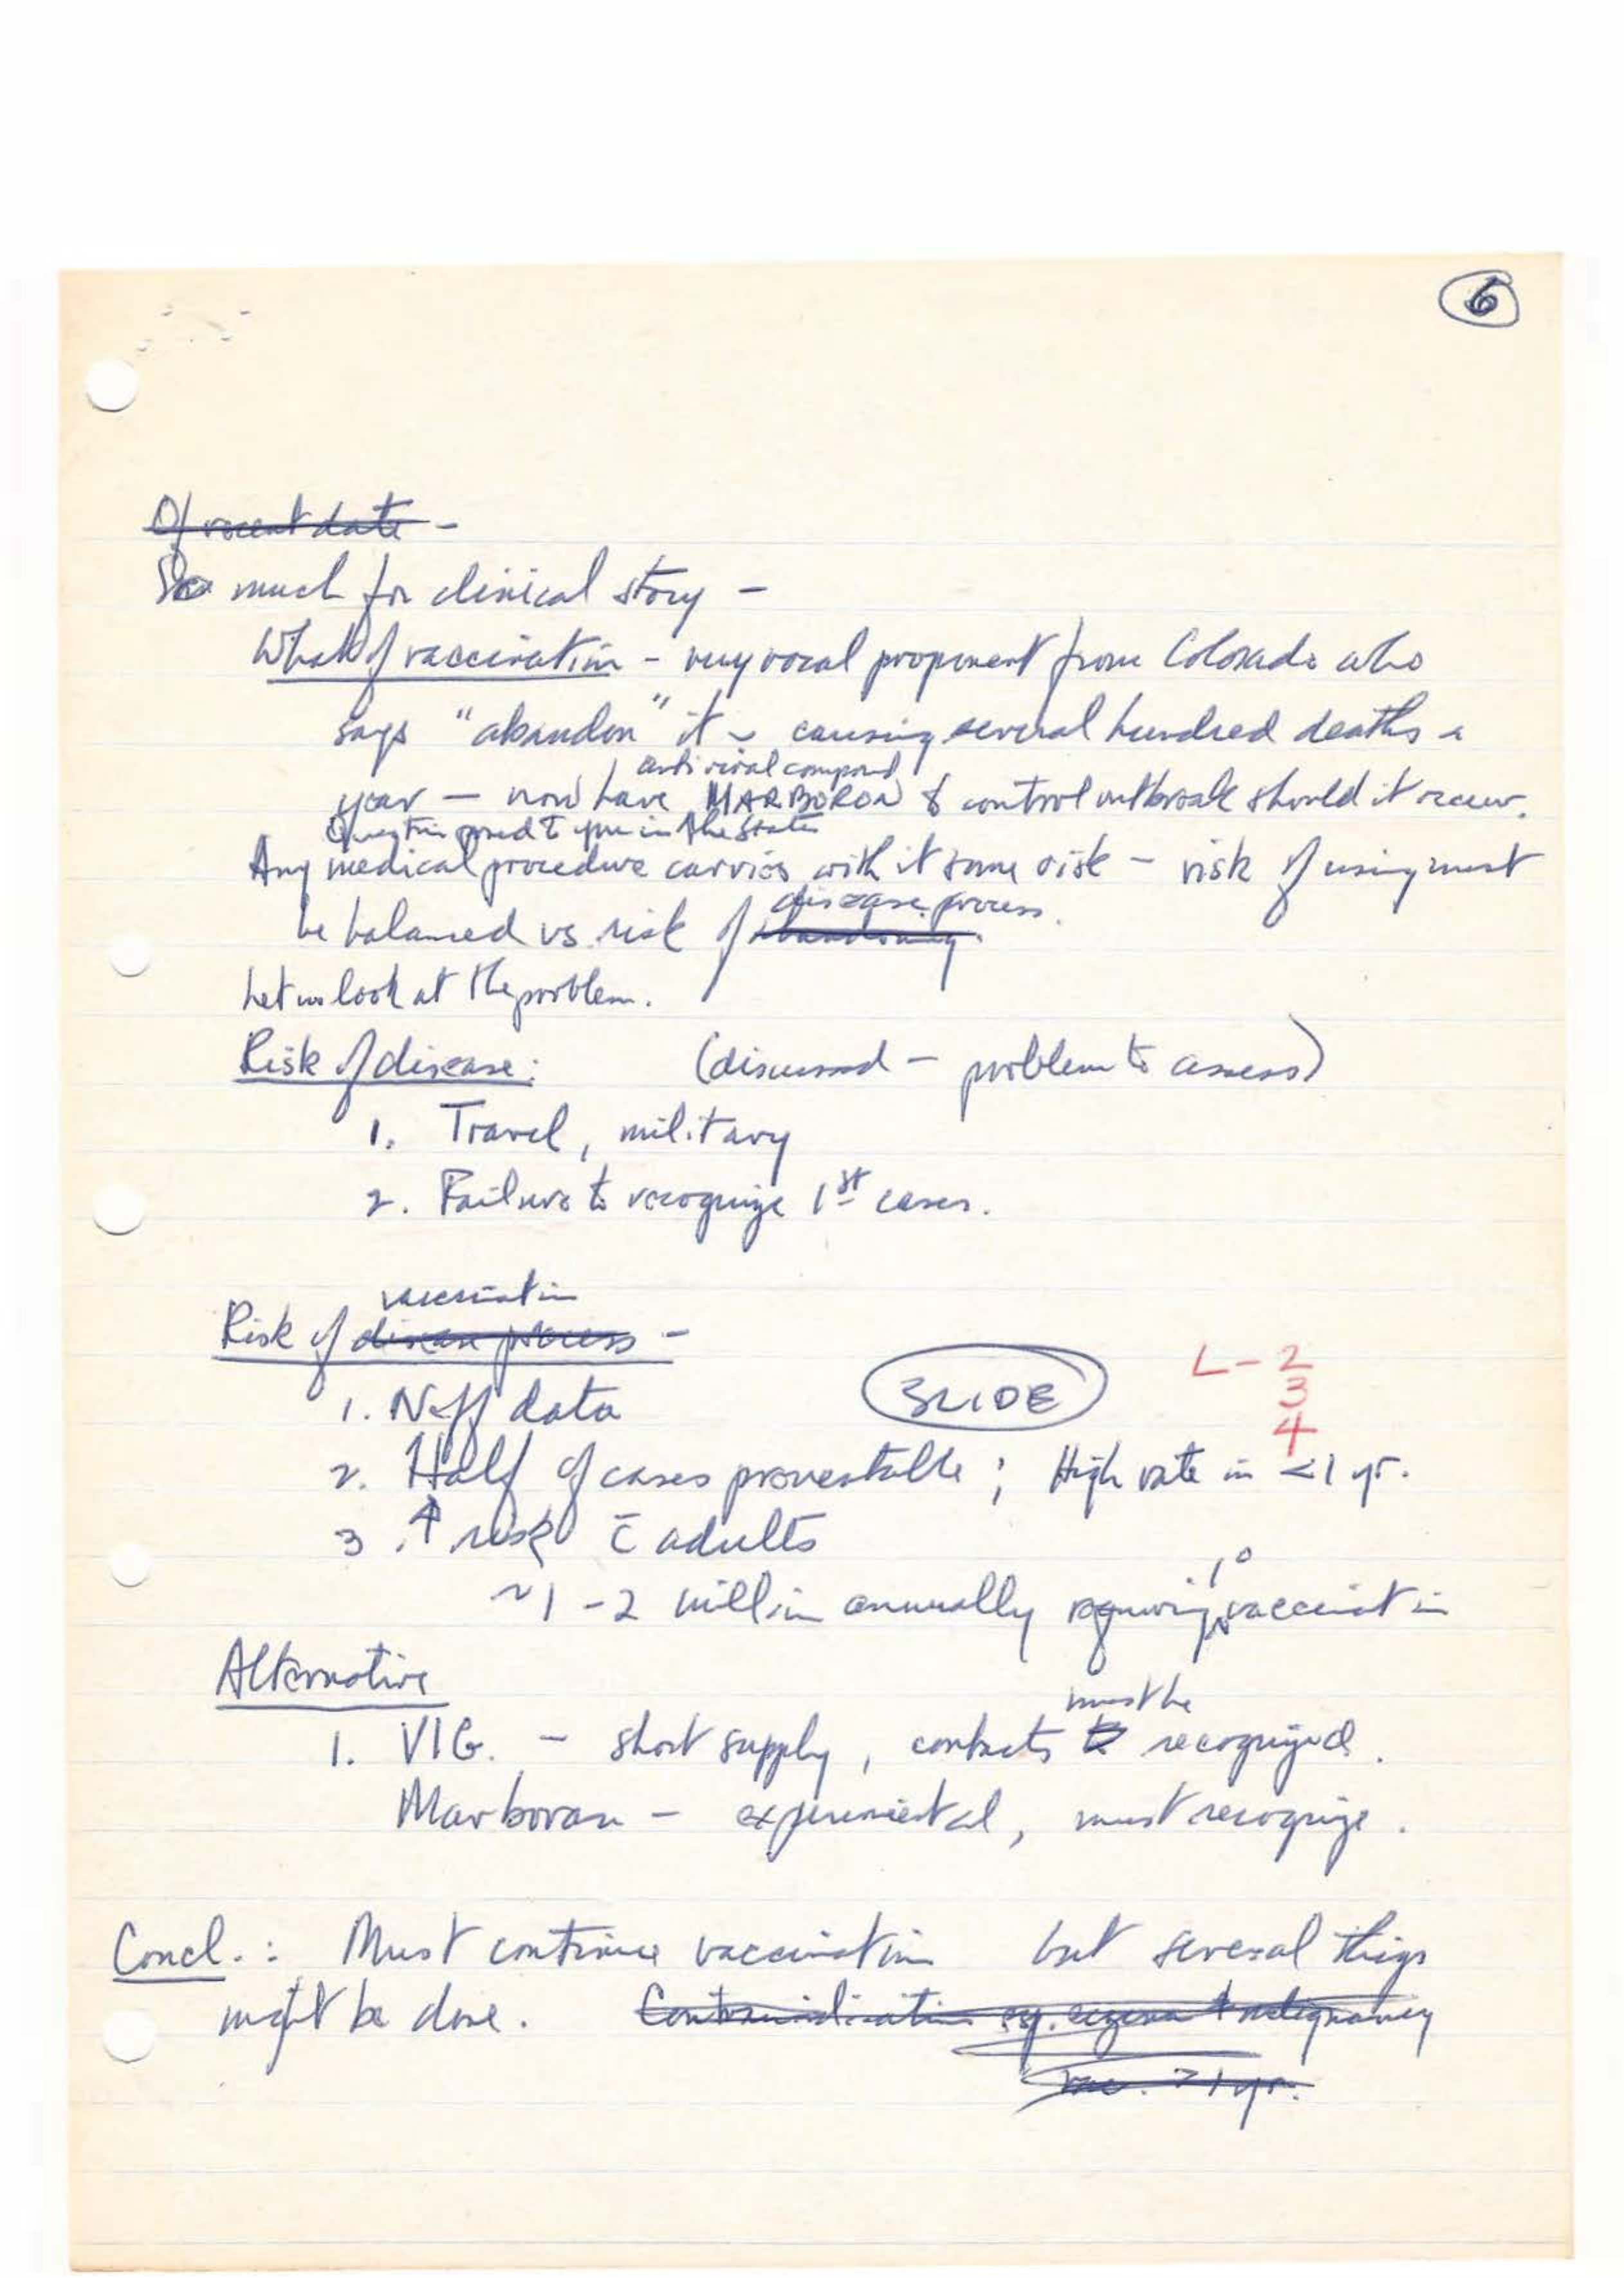 6
Of recent date -
So much for clinical story -
What of vaccination - very vocal proponent from Colorado who
says "abandon" it - causing several hundred deaths a
antiviral compound
year - now have MARBORON to control outbreak should it occur.
in the States
Any medical procedure carries with it some risk - risk of using must
disease process.
be balanced vs risk of abandoning.
Let us look at the problem.
Risk of disease: (discussed - problem to assess)
1. Travel, military
2. Failure to recognize 1st cases.
vaccination
Risk of disease process -
L-2
3
4
1. Neff data SLIDE
2. Half of cases preventable; High rate in <1 yr.
3. ↑ risk c̄ adults
1°
~1-2 million annually requiring vaccination
Alternative
must be
1. VIG. - short supply, contacts to recognized.
Marboran - experimental, must recognize.
Concl.: Must continue vaccination but several things
might be done. Contraindication esp. eczema + malignancy
vac. >1 yr.